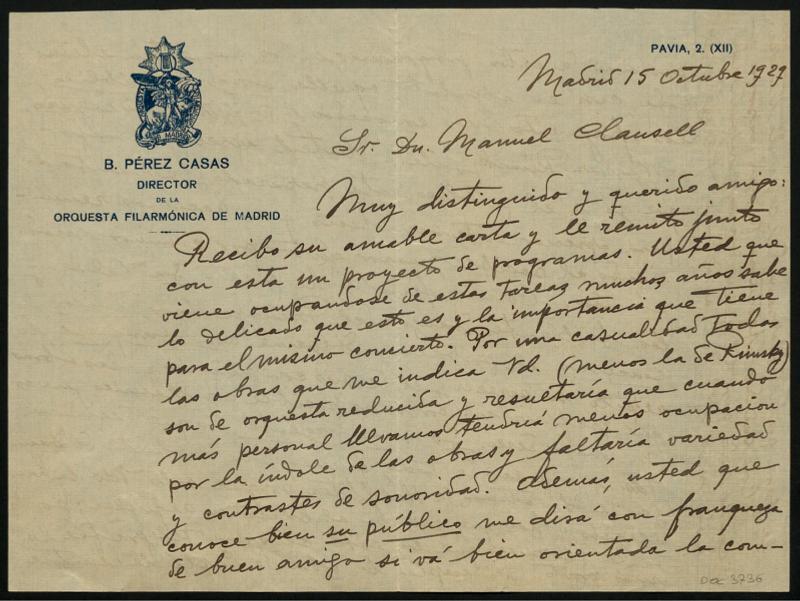 PAVIA, 2. (XII)
Madrid 15 Octubre 1927
B. PÉREZ CASAS
DIRECTOR
DE LA
ORQUESTA FILARMÓNICA DE MADRID
Sr. Dn. Manuel Clausell
Muy distinguido y querido amigo:
Recibo su amable carta y le remito junto
con esta un proyecto de programas. Usted que
viene ocupandose de estas tareaz muchoz años sabe
lo delicado que esto es y la importancia que tiene
para el mismo concierto. Por una casualidad todas
las obras que me indica Vd. (menos la de Rimsky)
son de orquesta reducida y resultaría que cuando
más personal llevamos tendriá menos ocupacion
por la índole de las obras y faltaría variedad
y contrastes de sonoridad. Además, usted que
conoce bien su público me dirá con franqueza
de buen amigo si vá bien orientada la com-
Doc 3736